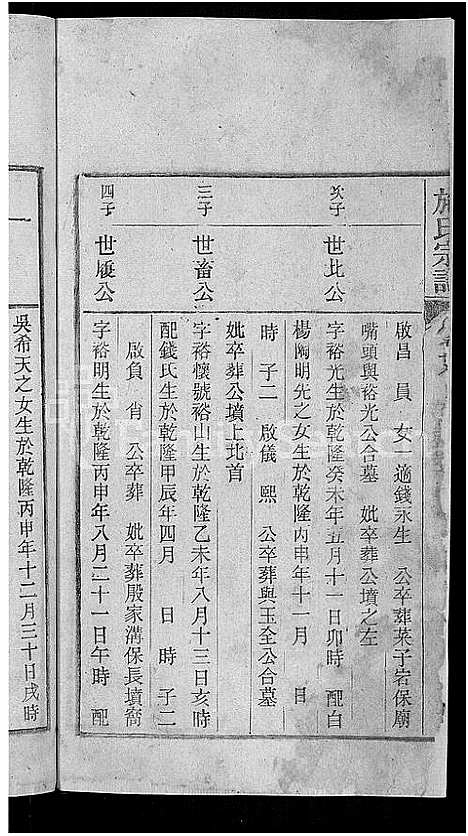 施氏宗譜
啟昌 員 女一適錢永生 公卒葬菜子岩保廟
嘴頭與裕光公合墓 妣卒葬公墳之左
次子 世比公 字裕光生於乾隆癸未年五月十一日卯時 配白
楊陶明先之女生於乾隆丙申年十一月 日
時 子二 啟儀 熙 公卒葬與玉全公合墓
妣卒葬公墳上北首
三子 世畜公 字裕懷號裕山生於乾隆乙未年八月十三日亥時
配錢氏生於乾隆甲辰年四月 日 時 子二
啟負 肯 公卒葬 妣卒葬殷家溝保長墳窩
四子 世履公 字裕明生於乾隆丙申年八月二十一日午時 配
吳希天之女生於乾隆丙申年十二月三十日戌時